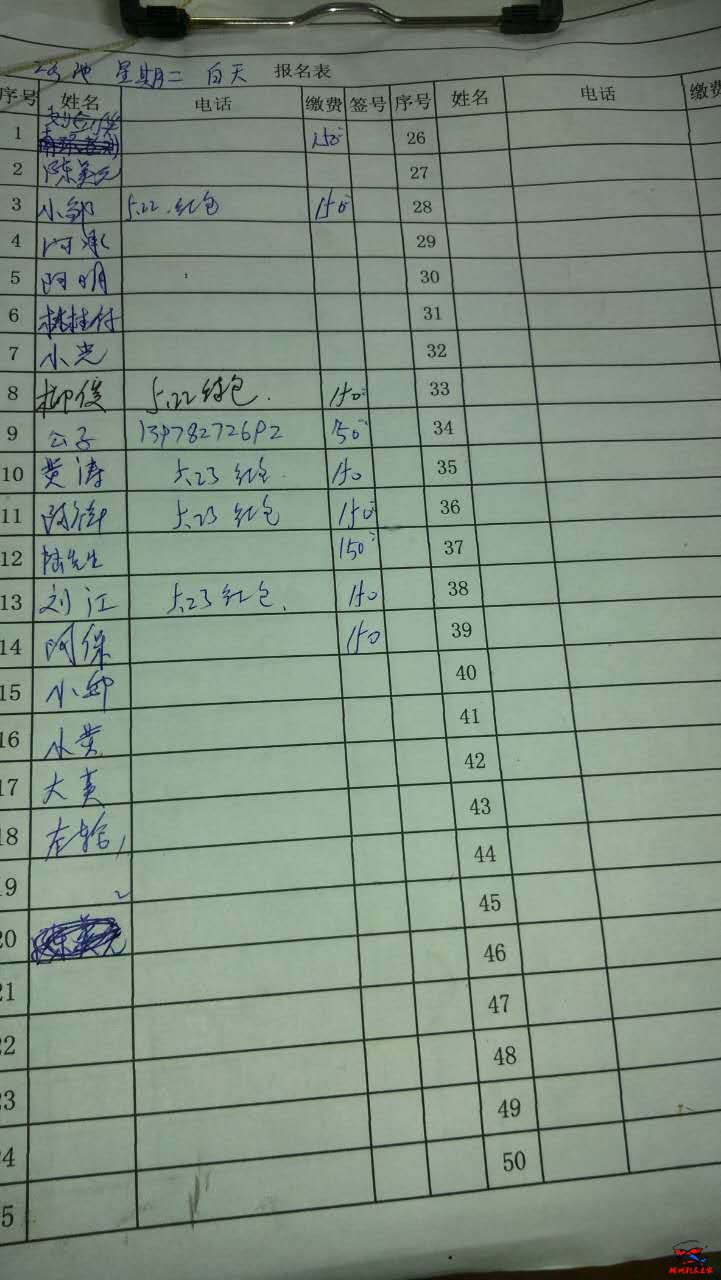 星期二 白天 报名表
序号 姓名 电话 缴费 签号 序号 姓名 电话 缴费
1 150 26
2 陈美元 27
3 小邹 5.22.红包 150 28
4 阿承 29
5 阿明 30
6 31
7 小光 32
8 柳俊 5.22红包. 150 33
9 公子 13978272692 50 34
10 黄涛 5.23 红包. 150 35
11 5.23 红包 150 36
12 陆先生 150 37
13 刘江 5.23红包. 150 38
14 阿保 150 39
15 小邱 40
16 小黄 41
17 大黄 42
18 左轮 1 43
19 2 44
20 45
21 46
22 47
23 48
24 49
25 50